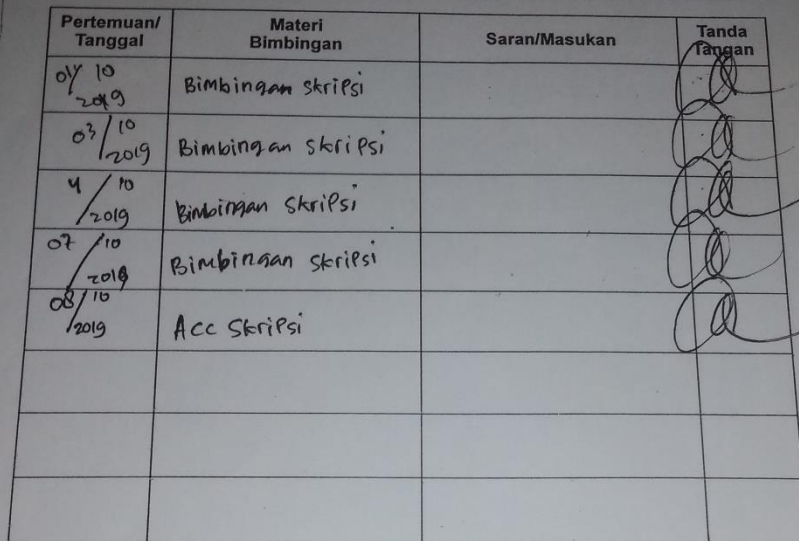 Pertemuan/ Tanggal
Materi Bimbingan
Saran/Masukan
Tanda Tangan
01/10 2019
Bimbingan Skripsi
03/10 2019
Bimbingan Skripsi
4/10 2019
Bimbingan Skripsi
07/10 2019
Bimbingan Skripsi
08/10 2019
Acc Skripsi